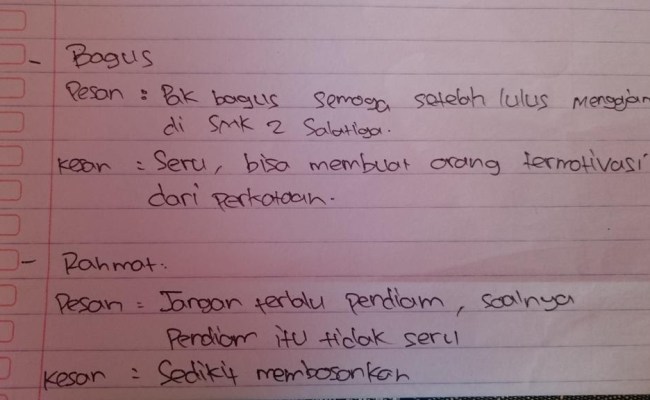 - Bagus
Pesan : Pak bagus semoga setelah lulus mengajar
di SMK 2 Salatiga.
Kesan : Seru, bisa membuat orang termotivasi
dari perkataan.
- Rahmat.
Pesan : Jangan terlalu pendiam, soalnya
Pendiam itu tidak seru
Kesan : Sedikit membosankan